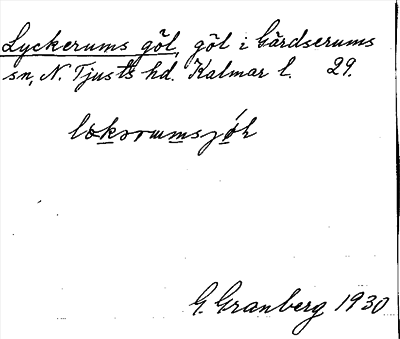 Lyckerums göl, göl i Gärdserums
sn, N. Tjusts hd. Kalmar l. 29.
G. Granberg 1930